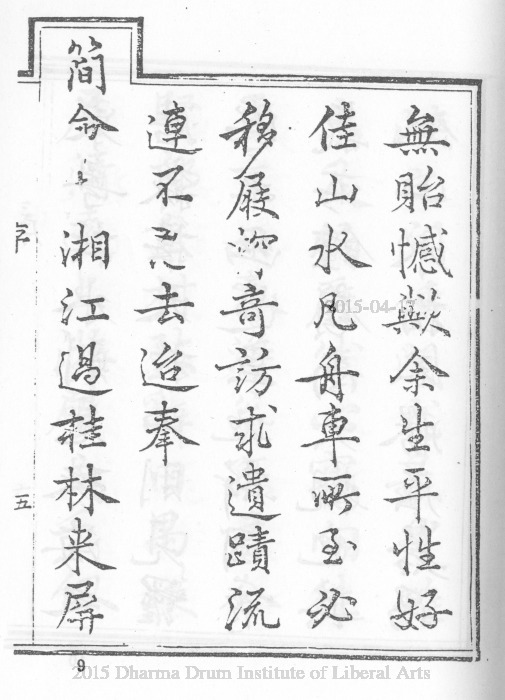 無貽憾歟余生平性好
佳山水凡舟車所至必
移屐 奇訪求遺蹟流
連不忍去迨奉
簡命 湘江過桂林来屏
序
五
9
2015-04-17
2015 Dharma Drum Institute of Liberal Arts